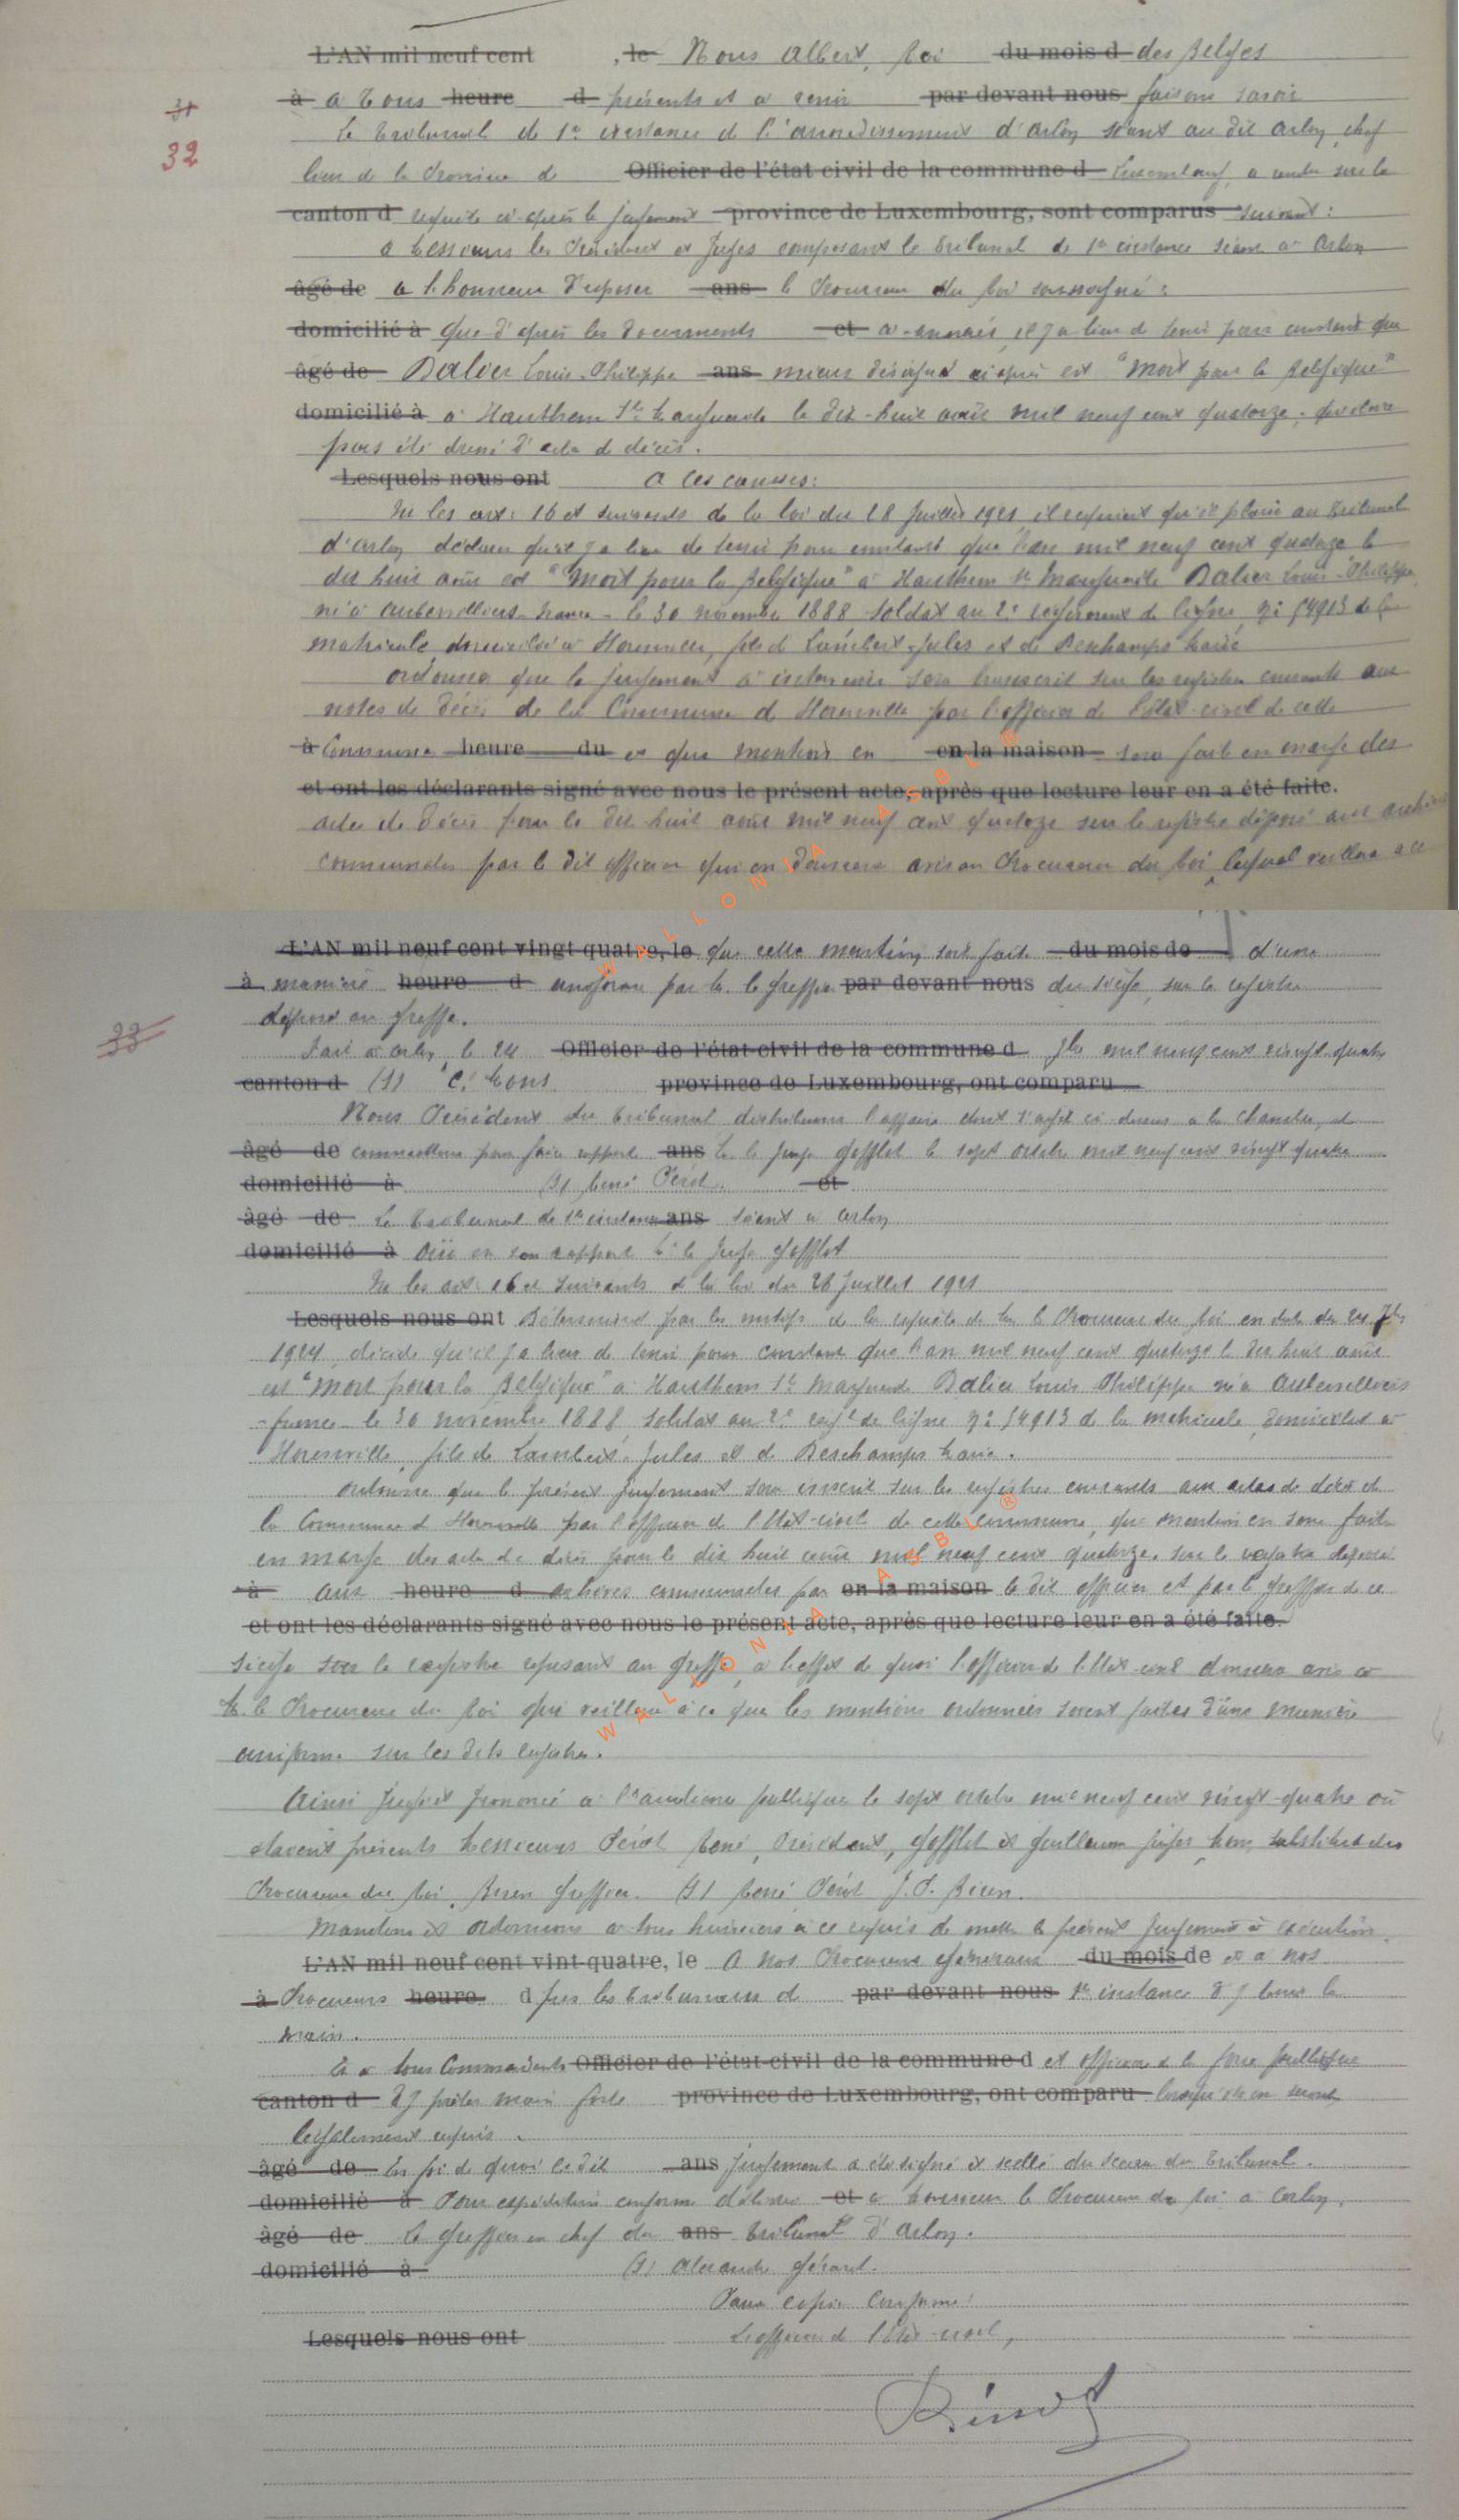 L'AN mil neuf cent , le Nous Albert, Roi du mois d des Belges
31
à a tous heure d présents et à venir par devant nous faisons savoir
32
Le tribunal de 1re instance de l'arrondissement d'Arlon séant au dit Arlon, chef
lieu de la Province de Officier de l'état civil de la commune d Luxembourg, a rendu sur la
canton d requête ci-après le jugement province de Luxembourg, sont comparus suivant :
A Messieurs les Président et Juges composant le tribunal de 1re instance séant à Arlon
âgé de a l'honneur d'exposer ans le Procureur du Roi soussigné :
domicilié à que d'après les documents et ci-annexés, il y a lieu de tenir pour constant que
âgé de Dalier Louis-Philippe ans mieux désigné ci-après est "Mort pour la Belgique"
domicilié à à Hauthem Ste Marguerite le dix-huit août mil neuf cent quatorze,
pas été dressé d'acte de décès.
Lesquels nous ont A ces causes :
Vu les art. 16 et suivants de la loi du 28 Juillet 1921, il requiert qu'il plaise au tribunal
d'Arlon déclarer qu'il y a lieu de tenir pour constant que l'an mil neuf cent quatorze le
dix huit août est "Mort pour la Belgique" à Hauthem Ste Marguerite Dalier Louis-Philippe,
né à Aubervilliers-France- le 30 novembre 1888 soldat au 2e régiment de ligne, n° 54913 de la
matricule, domicilié à Houmville, fils de Lambert-Jules et de Deschamps Marie
ordonner que le jugement à intervenir sera transcrit sur les registres courants aux
actes de décès de la Commune de par l'officier de l'état-civil de cette
à Commune heure du et que mention en en la maison sera faite en marge des
et ont les déclarants signé avec nous le présent acte, après que lecture leur en a été faite.
actes de décès pour le dix huit août mil neuf cent quatorze sur le registre déposé aux archives
communales par le dit officier qui en donnera avis au Procureur du Roi, lequel veillera à ce
L'AN mil neuf cent vingt quatre, le que cette mention soit faite du mois de d'une
à manière heure d uniforme par M. le greffier par devant nous du siège, sur le registre
déposé au greffe.
33
Fait à Arlon, le 24 Officier de l'état-civil de la commune d 7bre mil neuf cent vingt-quatre
canton d (s) province de Luxembourg, ont comparu
Nous Président du tribunal distribuons l'affaire dont s'agit ci-dessus à la chambre, et
âgé de commettons pour faire rapport ans M. le Juge Gofflot le sept octobre mil neuf cent vingt-quatre
domicilié à (s) René Périn et
âgé de Le tribunal de 1re instance ans séant à Arlon
domicilié à Oüi en son rapport M. le Juge Gofflot
Vu les art. 16 et suivants de la loi du 28 Juillet 1921
Lesquels nous ont Déterminé par les motifs de la requête de M. le Procureur du Roi en date du 24 7bre
1924, décide qu'il y a lieu de tenir pour constant que l'an mil neuf cent quatorze le dix huit août
est "Mort pour la Belgique" à Hauthem Ste Marguerite Dalier Louis Philippe né à Aubervilliers
-France- le 30 novembre 1888 soldat au 2e régt de ligne n° 54913 de la matricule, domicilié à
fils de Lambert-Jules et de Deschamps Marie.
ordonne que le présent jugement sera inscrit sur les registres courants aux actes de décès de
la Commune de par l'officier de l'Etat-civil de cette commune, que mention en sera faite
en marge des actes de décès pour le dix huit août mil neuf cent quatorze, sur le registre déposé
à aux heure d archives communales par en la maison le dit officier et par le greffier de ce
et ont les déclarants signé avec nous le présent acte, après que lecture leur en a été faite.
siège sur le registre reposant au greffe, à l'effet de quoi l'officier de l'Etat-civil donnera avis à
M. le Procureur du Roi qui veillera à ce que les mentions ordonnées soient faites d'une manière
uniforme sur les dits registres.
Ainsi jugé et prononcé à l'audience publique le sept octobre mil neuf cent vingt-quatre où
étaient présents Messieurs René, Président, Gofflot et Guillaume juges, substitut du
Procureur du Roi, greffier. (s) René J. P.
Mandons et ordonnons à tous huissiers à ce requis de mettre le présent jugement à exécution.
L'AN mil neuf cent vint-quatre, le A nos Procureurs généraux du mois de et à nos
à Procureurs heure d près les tribunaux de par devant nous 1re instance d'y tenir la
main.
Et à tous Commandants Officier de l'état-civil de la commune d et officiers de la force publique
canton d d'y prêter main forte province de Luxembourg, ont comparu lorsqu'ils en seront
légalement requis.
âgé de En foi de quoi le dit ans jugement a été signé et scellé du sceau du tribunal.
domicilié à Pour expédition conforme délivrée et à Monsieur le Procureur du Roi à Arlon,
âgé de Le greffier en chef du ans tribunal d'Arlon.
domicilié à (s) Alexandre Gérard.
Pour copie conforme :
Lesquels nous ont L'officier de l'Etat-civil,
WALLONIA ASBL ®
WALLONIA ASBL ®